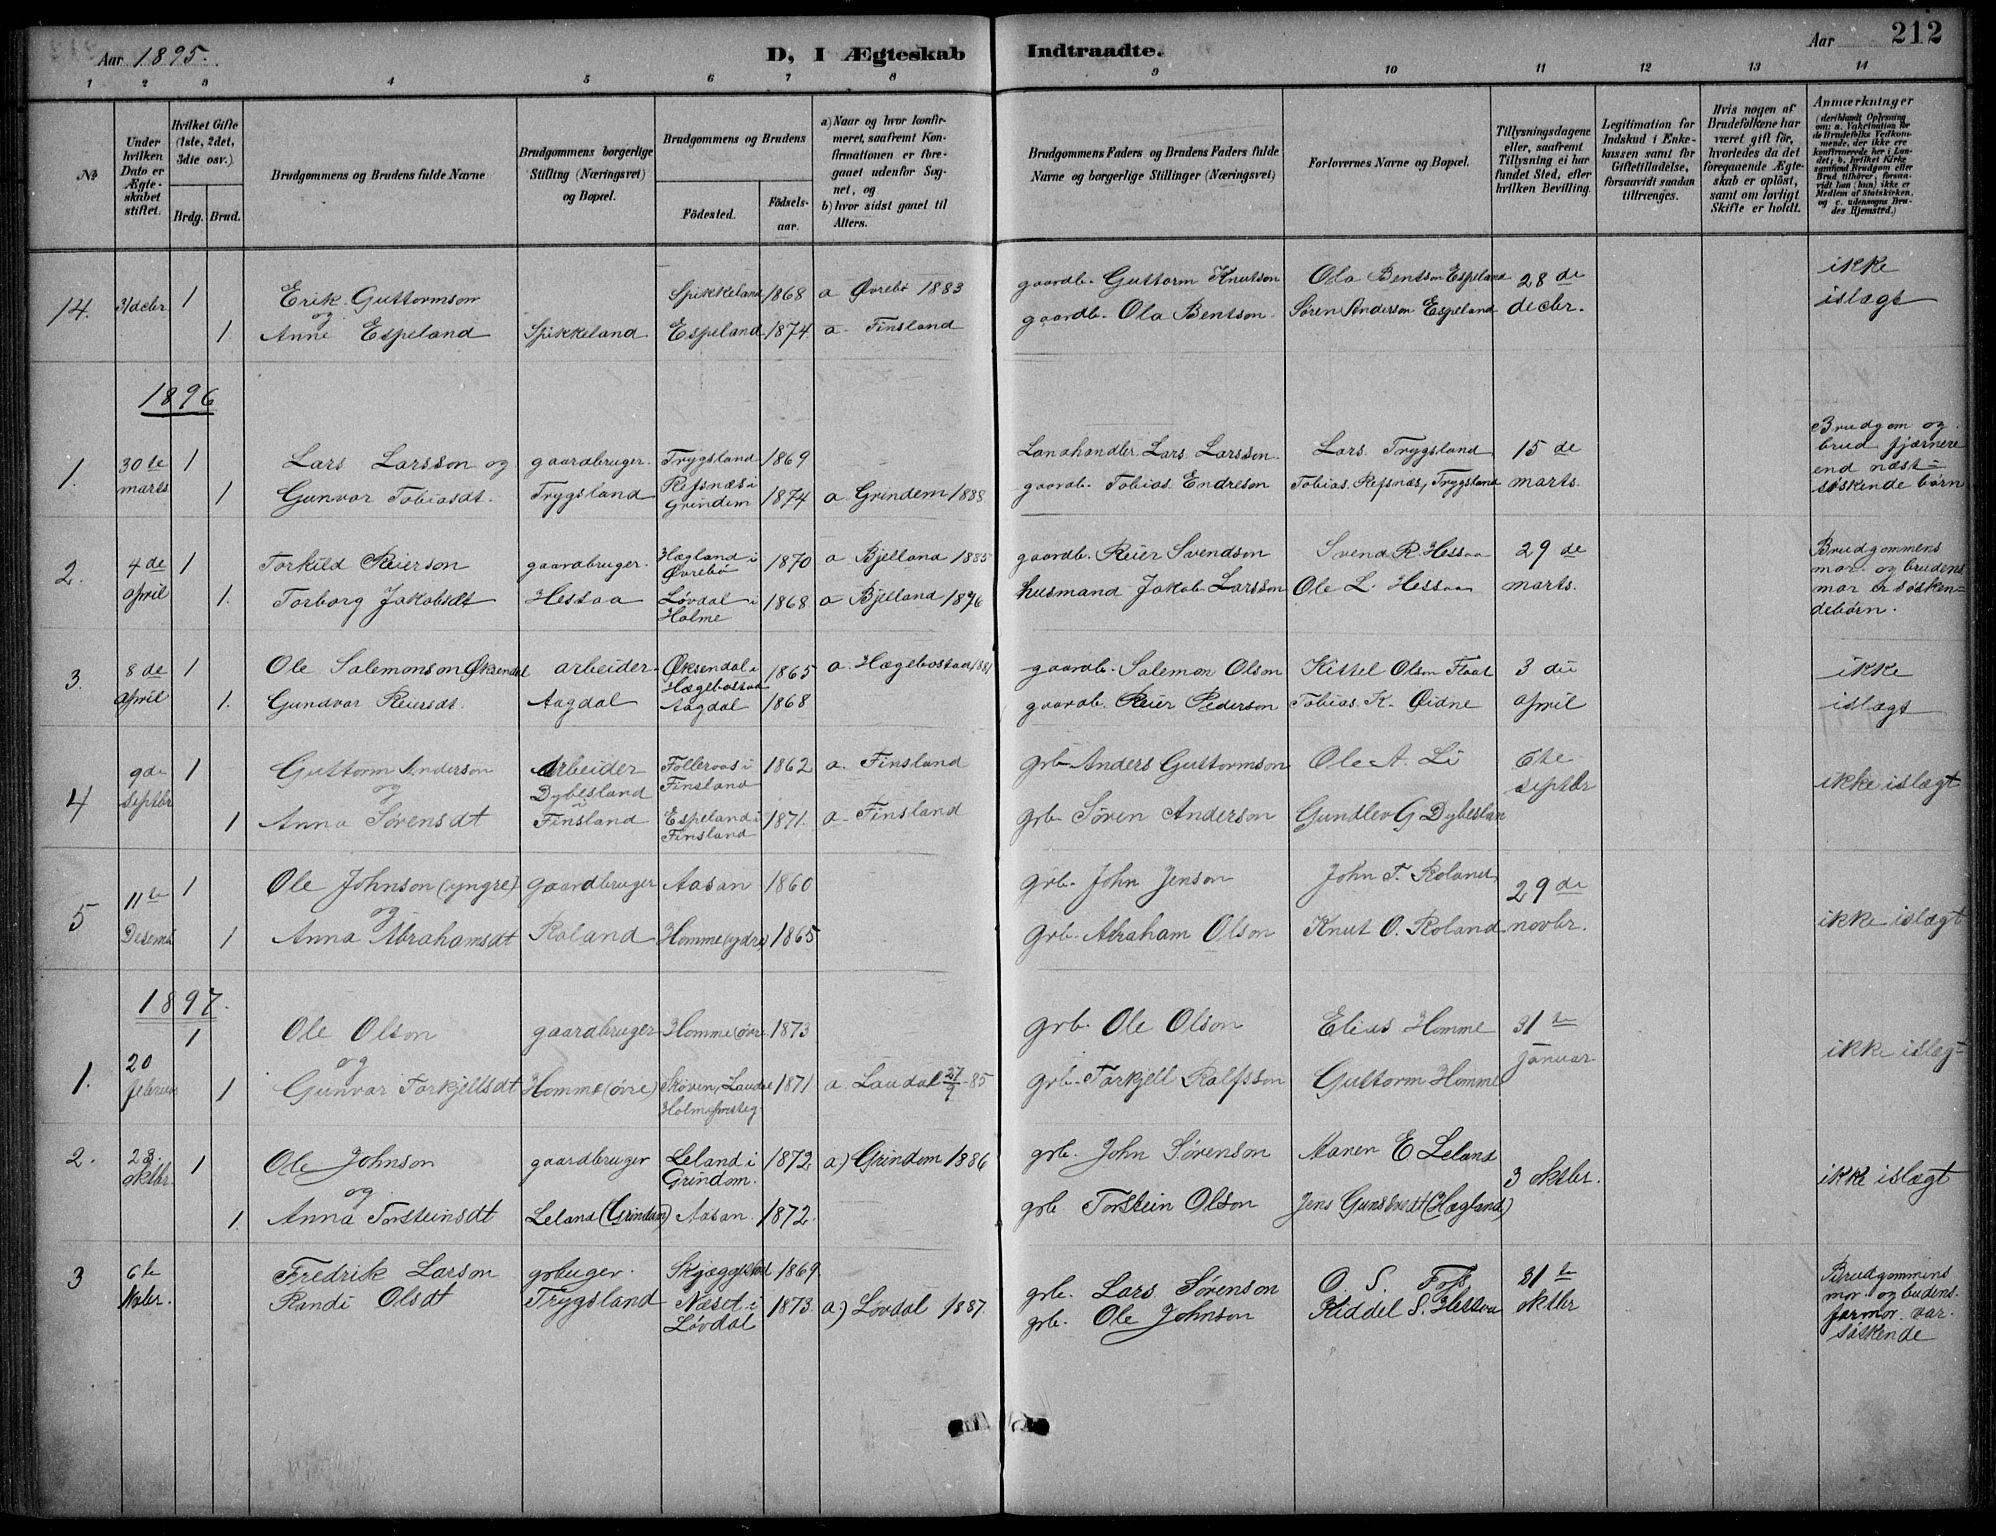 Aar 1895.
D, I Ægteskab Indtraadte.
Aar 212
1 2 3 4 5 6 7 8 9 10 11 12 13 14
No
Under hvilken Dato er Ægteskabet stiftet.
Hvilket Gifte (1ste, 2det, 3die osv.)
Brdg. Brud.
Brudgommens og Brudens fulde Navne
Brudgommens borgerlige Stilling (Næringsvei) og Bopæl.
Brudgommens og Brudens
Födested. Födselsaar.
a) Naar og hvor konfirmeret, saafremt Konfirmationen er foregaaet udenfor Sognet, og
b) hvor sidst gaaet til Alters.
Brudgommens Faders og Brudens Faders fulde Navne og borgerlige Stillinger (Næringsvei)
Forlovernes Navne og Bopæl.
Tillysningsdagene eller, saafremt Tillysning ei har fundet Sted, efter hvilken Bevilling.
Legitimation for Indskud i Enkekassen samt for Giftetilladelse, forsaavidt saadan tiltrænges.
Hvis nogen af Brudefolkene har været gift för, hvorledes da det foregaaende Ægteskab er oplöst, samt om lovligt Skifte er holdt.
Anmærkninger (deriblandt Oplysning om: a. Vakcination for de Brudefolks Vedkommende, der ikke ere konfirmerede her i Landet; b. hvilket Kirkesamfund Brudgom eller Brud tilhörer, forsaavidt han (hun) ikke er Medlem af Statskirken, og c. udensogns Brudes Hjemsted.)
14. 31 decbr. 1 Erik Guttormson Spikkeland 1868 a Øvrebø 1883 gaardb. Guttorm Knutson Ola Bentson Espeland 28 de ikke
og
1. Anne Espeland Spikkeland Espeland 1874 a. Finsland gaardb. Ola Bentson Søren Anderson Espeland decbr. islægt
1896
1. 30te 1 Lars Larsson og gaardbruger. Trygsland 1869 Landhandler Lars Larsson Lars Trygsland 15 de Brudgom og brud fjærnere
marts 1 Gunvor Tobiasdt. Trygsland Refsnæs i Grindem 1874 a. Grindem 1888 gaardb. Tobias Endreson Tobias Refsnæs, Trygsland marts. end næst-søskende børn
2. 4 de 1 Torkild Reierson gaardbruger. Hægland i Øvrebø 1870 a Bjelland 1885 gaardb. Reier Svendson Svend R. Hessaa 29 de Brudgommens mor og brudens
April 1. Torborg Jakobsdt Hessaa Løvdal i Holme 1868 a Bjelland 1896 husmand Jakob Larsson Ole L. Hessaa marts. mor er søskendebørn.
3. 8 de 1 Ole Salemonson Øksendal arbeider Øksendal i Hægebostad 1865 a. Hægebostad 1881 gaardb. Salemon Olson Kittel Olson Flaat 3 die ikke
April 1. Gundvor Reiersdt. Aagdal Aagdal 1868 gaardb. Reier Pederson Tobias K. Øidne April islægt
4 9de 1 Guttorm Anderson Arbeider Folleraas i Finsland 1862 a. Finsland grb. Anders Guttormson Ole A. Li 6te
og Dybesland i
Septbr 1 Anna Sørensdt Finsland Espeland i Finsland 1871. a. Finsland grb. Søren Anderson Gundlev G Dybeslan septbr ikke islægt
5 11te 1 Ole Johnson (yngre) gaardbruger Aasan 1860 grb. John Jenson John T. Roland 29 de
og
Desemb 1 Anna Abrahamsdt Roland Homme (ydre) 1865 grb. Abraham Olson Knut O. Roland novbr. ikke islægt
1897.
1. 20 1 Ole Olson gaardbruger Homme (øvre 1873 grb. Ole Olson Elias Homme 31 te
og
februar 1 Gunvor Torkjellsdt Homme (øvre) Skøven, Laudal Holme presteg 1871 a. Laudal 27/9-85 grb. Torkjell Rolfsson Guttorm Homme januar ikke islægt
2. 23. oktbr. 1 Ole Johnson gaardbruger Leland i Grindom. 1872 a) Grindom 1886 grb. John Sørenson Aanen E Leland 3 oktbr. ikke islægt
og
1. Anna Torsteinsdt Leland (Grindom) Aasan. 1872. grb Torstein Olson Jens Gunstvedt (Hægland)
3 6te Fredrik Larson grbruger. Skjæggestad 1869 grb. Lars Sørenson O. S. Foss 31te Brudgommens mor og budens
Nobr. Randi Olsdt Trygsland Næset i Løvdal 1873. a) Løvdal 1887. grb. Ole Johnson Kiddel S. Hessaa oktbr farmor var søskende